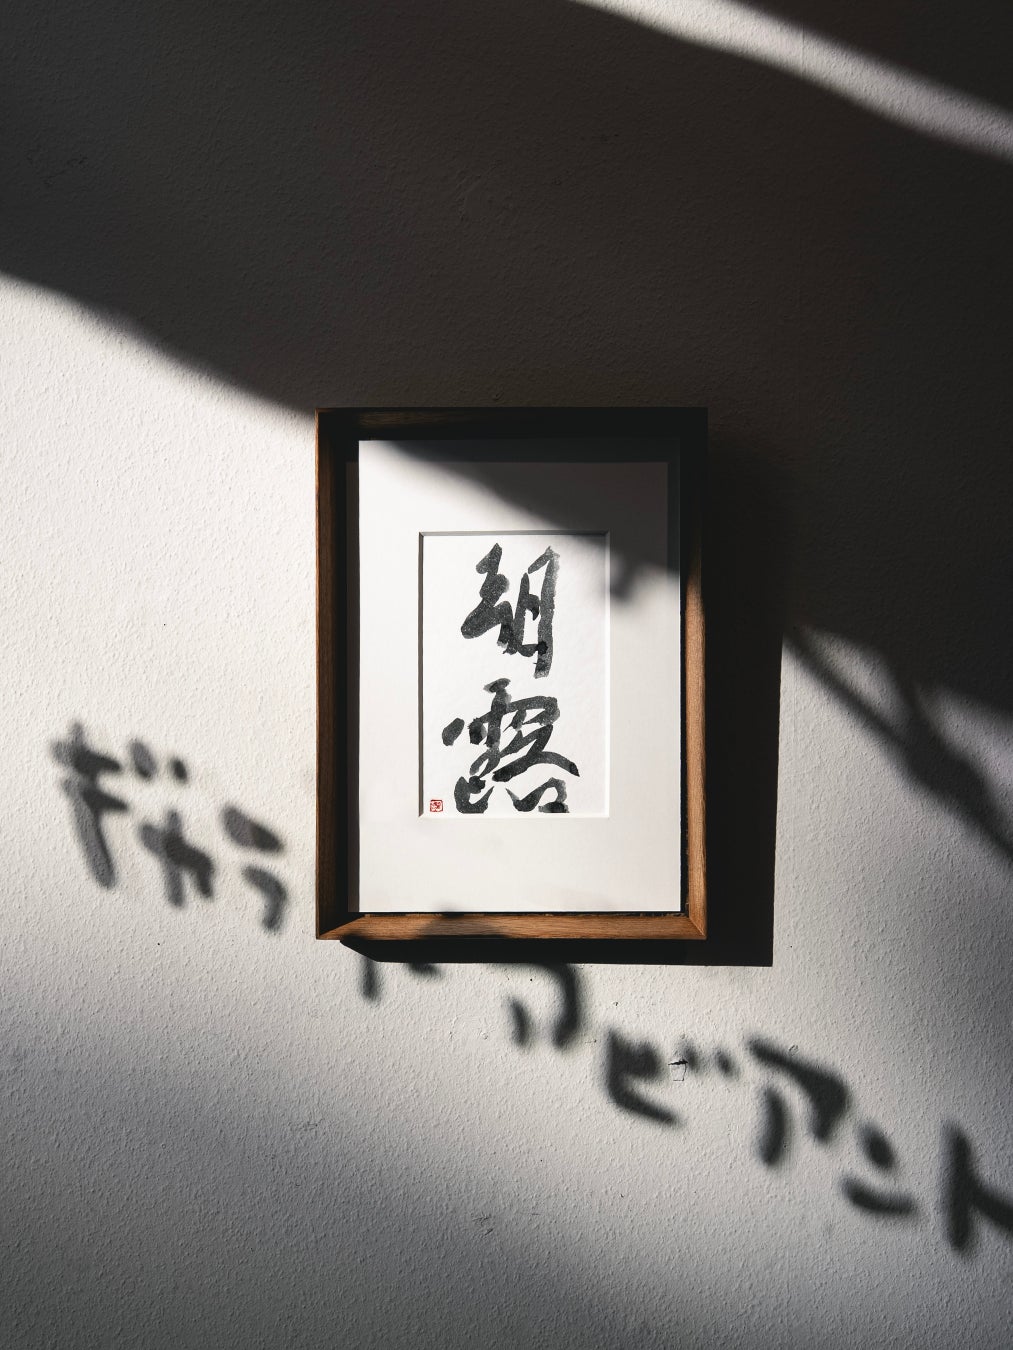 朝露
ギャラリーアビアント